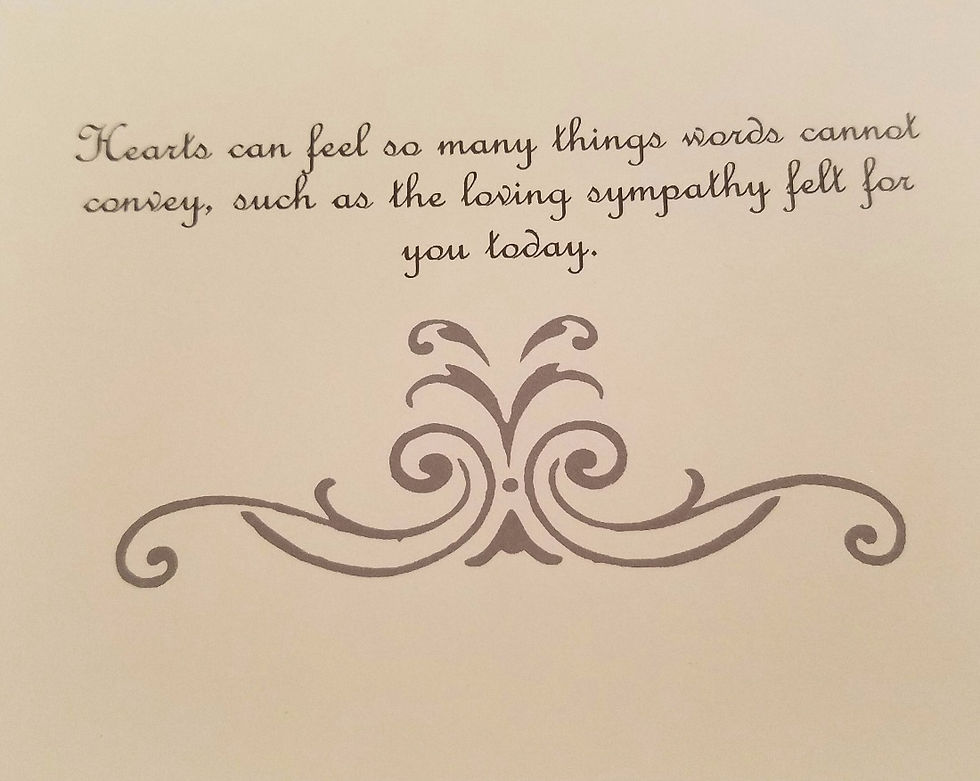 Hearts can feel so many things words cannot
convey, such as the loving sympathy felt for
you today.